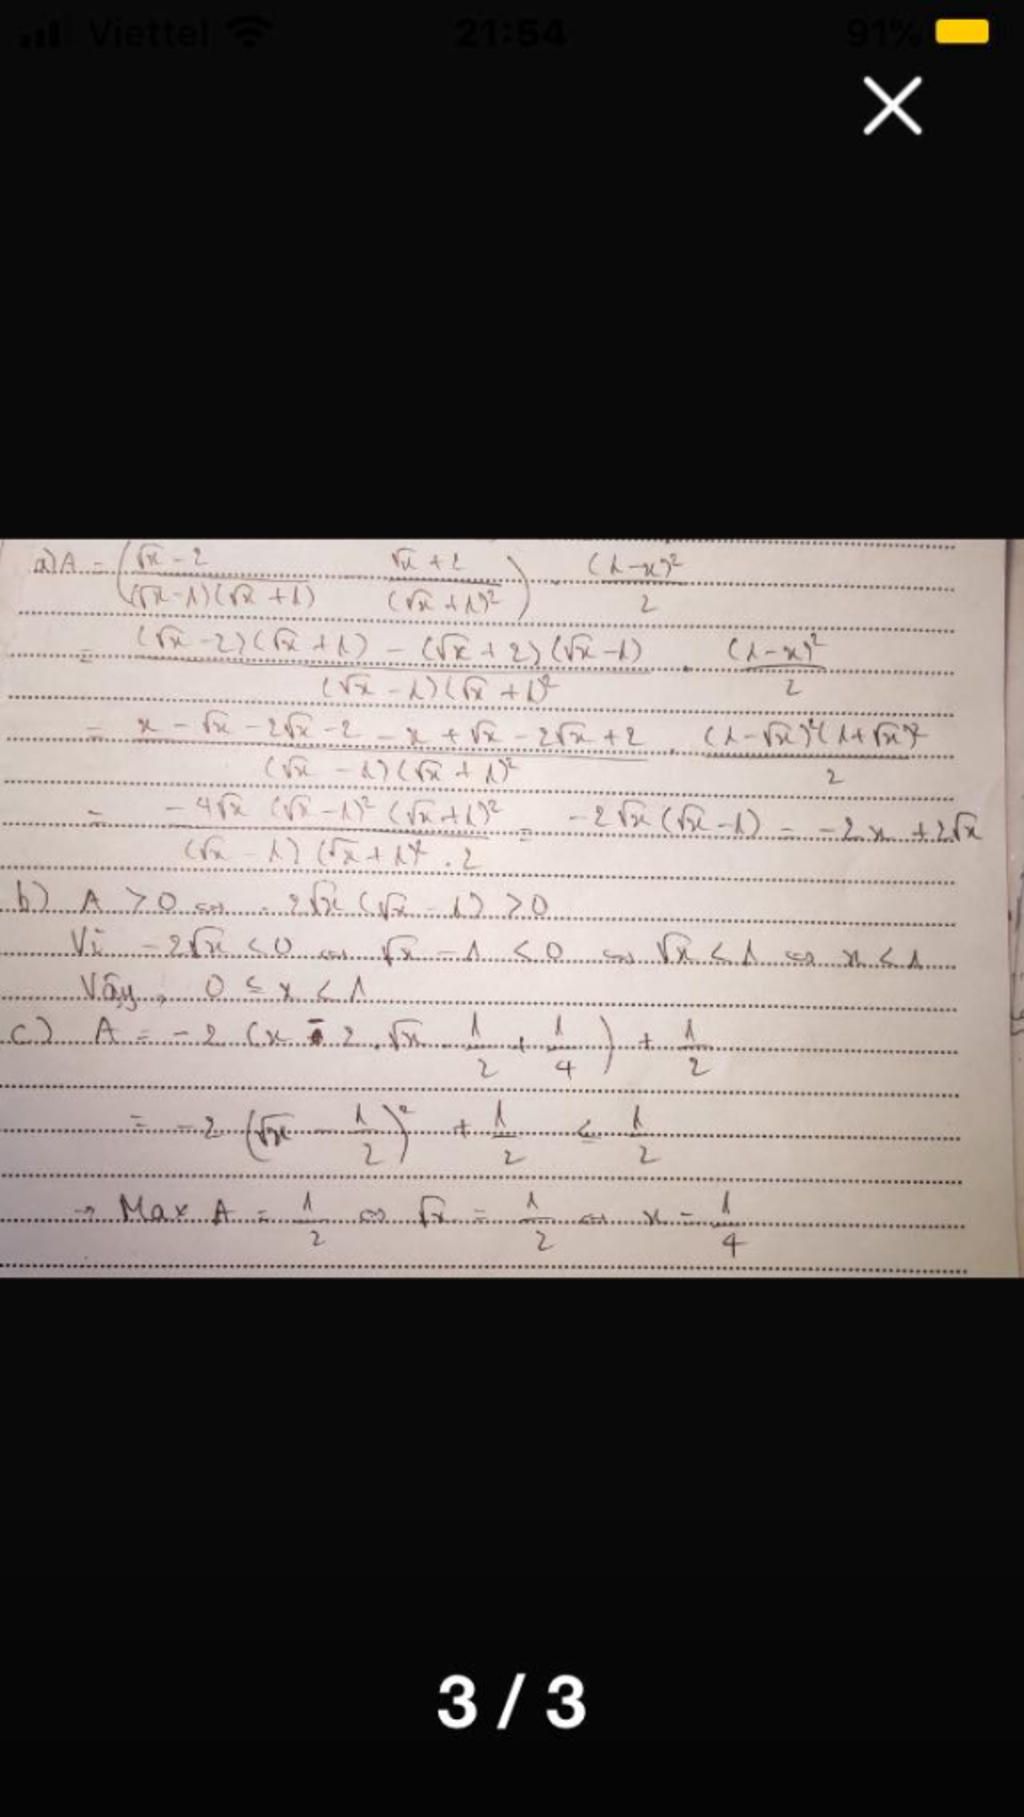 Viettel 21:54 91%
a) A = (√x - 2 / (√x - 1)(√x + 1) √x + 2 / (√x + 1)²) . (1 - x)² / 2
= (√x - 2)(√x + 1) - (√x + 2)(√x - 1) / (√x - 1)(√x + 1)² . (1 - x)² / 2
= x - √x - 2√x - 2 - x + √x - 2√x + 2 / (√x - 1)(√x + 1)² . (1 - √x)²(1 + √x)² / 2
= -4√x (√x - 1)² (√x + 1)² / (√x - 1)(√x + 1)² . 2 = -2√x (√x - 1) = -2x + 2√x
b) A > 0 ⇔ - 2√x (√x - 1) > 0
Vì -2√x < 0 ⇔ √x - 1 < 0 ⇔ √x < 1 ⇔ x < 1
Vậy 0 ≤ x < 1
c) A = -2 (x - 2 . √x . 1/2 + 1/4) + 1/2
= -2 (√x - 1/2)² + 1/2 ≤ 1/2
→ Max A = 1/2 ⇔ √x = 1/2 ⇔ x = 1/4
3 / 3